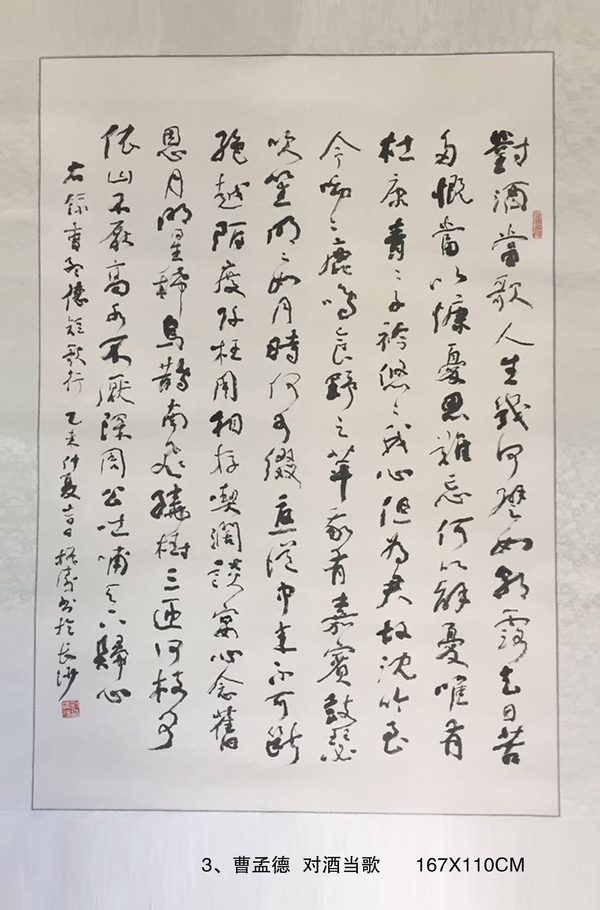 對酒當歌人生幾何譬如朝露去日苦
多慨當以慷憂思難忘何以解憂唯有
杜康青々子衿悠々我心但為君故沈吟至
今呦々鹿鳴食野之苹我有嘉賓鼓瑟
吹笙明々如月時何可綴從中來不可斷
絶越陌度阡枉用相存喫闊談宴心念舊
恩月明星稀烏鵲南飛繞樹三匝何枝可
依山不厭高水不厭深周公吐哺天下歸心
右錄曹孟德短歌行 亥仲夏吉日 書於長沙
3、曹孟德 对酒当歌 167X110CM